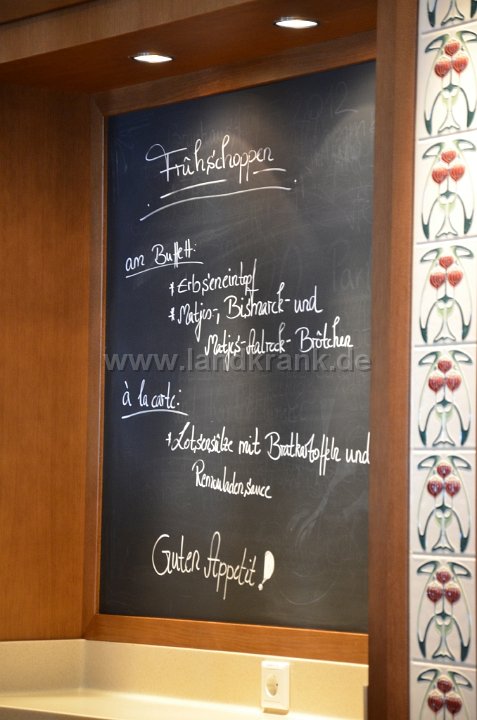 Frühschoppen
am Buffett:
* Erbseneintopf
* Matjes-, Bismarck- und
Matjes-Aalrock- Brötchen
www.landkrank.de
à la carte:
* Lotsensülze mit Bratkartoffeln und
Remouladensauce
Guten Appetit!